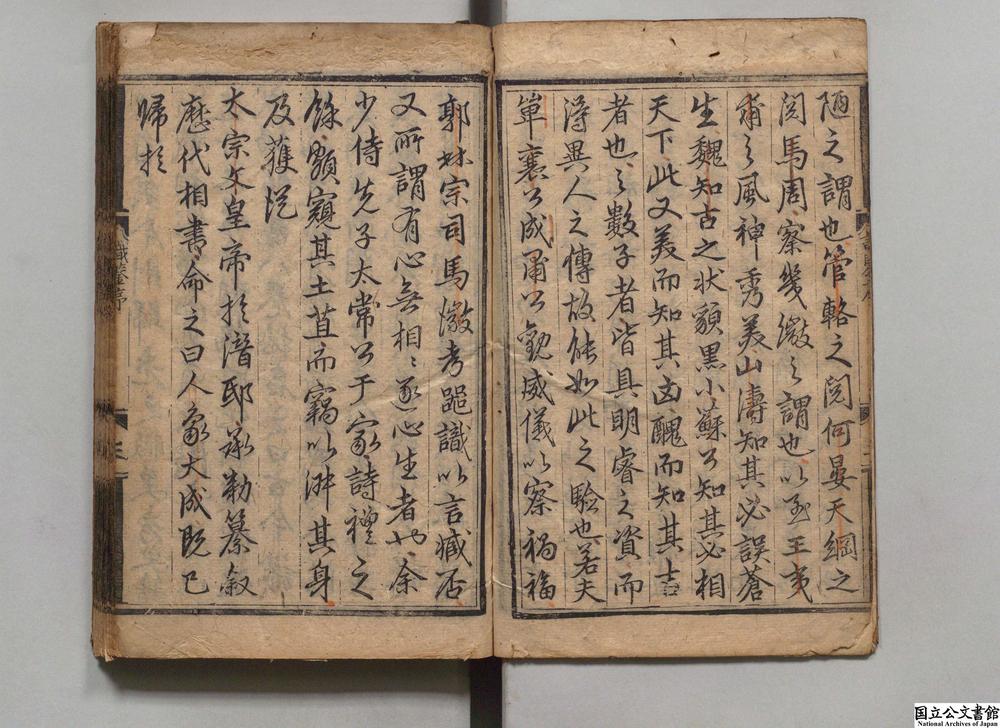 陋之謂也管輅之閱何晏天綱之
閱馬周察幾微之謂也以至王夷
甫之風神秀美山濤知其必誤蒼
生魏知古之狀貌黑小蘇公知其必相
天下此又美而知其凶醜而知其吉
者也之數子者皆具明睿之資而
得異人之傳故能如此之驗也若夫
單襄公成肅公觀威儀以察禍福
郭林宗司馬徽考識以言臧否
又所謂有心無相相逐心生者也余
少侍先子太常公于家詩禮之
餘顥窺其土苴而竊以淑其身
及獲從
太宗文皇帝於潛邸承勑纂敘
歷代相書命之曰人象大成既已
歸於
鑑序
三
国立公文書館
National Archives of Japan